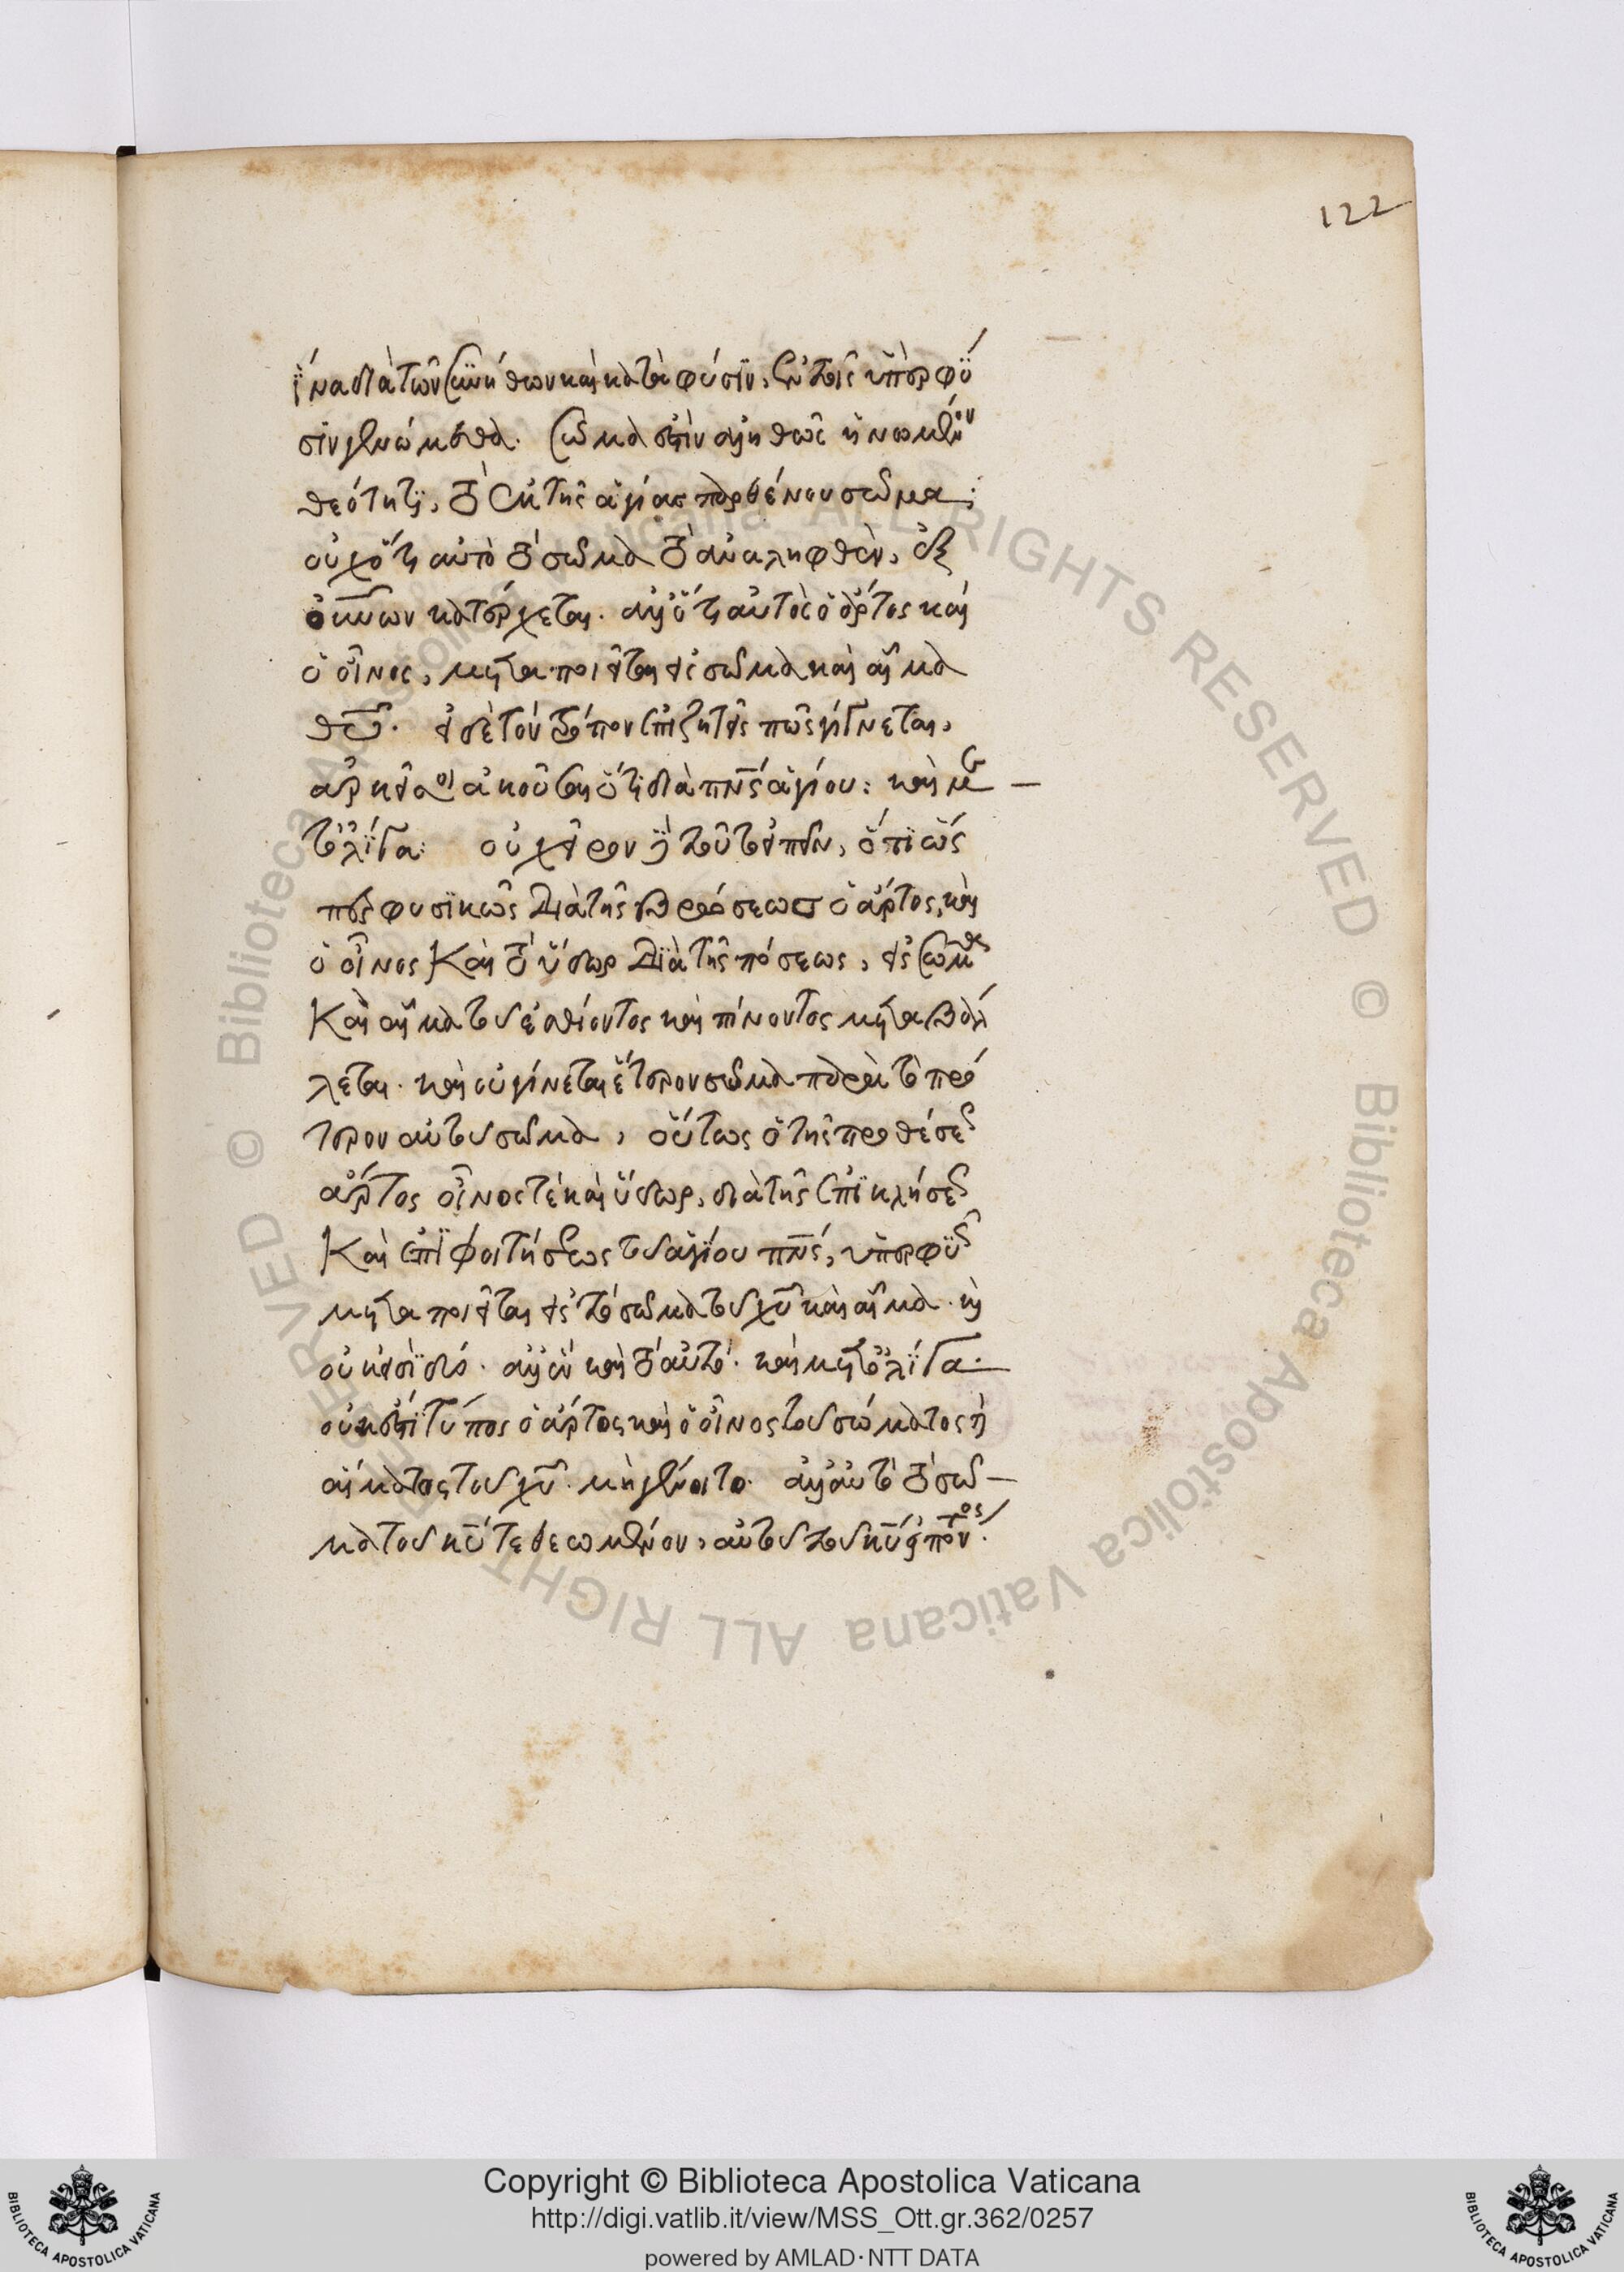 122
ἵνα διὰ τῶν συνήθων καὶ κατὰ φύσιν, ἐν τοῖς ὑπὲρ φύ
σιν γενώμεθα. σῶμά ἐστιν ἀληθῶς ἡνωμένον
θεότητι, τὸ ἐκ τῆς ἁγίας παρθένου σῶμα·
οὐχ ὅτι αὐτὸ τὸ σῶμα τὸ ἀναληφθὲν, ἐξ
οὐνων κατέρχεται. ἀλλ' ὅτι αὐτὸς ὁ ἄρτος καὶ
ὁ οἶνος, μεταποιεῖται εἰς σῶμα καὶ αἷμα
θεοῦ. εἰ δὲ τὸν τρόπον ἐπιζητεῖς πῶς γίνεται,
ἀρκεῖ σοι ἀκοῦσαι ὅτι διὰ πνς ἁγίου: καὶ μετ
τ' ὀλίγα: οὐ χεῖρον δὲ τοῦτο εἰπεῖν, ὅτι ὥς
περ φυσικῶς διὰ τῆς βρώσεως ὁ ἄρτος, καὶ
ὁ οἶνος καὶ τὸ ὕδωρ διὰ τῆς πόσεως, εἰς σῶμα
καὶ αἷμα τοῦ ἐσθίοντος καὶ πίνοντος μεταβάλ
λεται. καὶ οὐ γίνεται ἕτερον σῶμα παρὰ τὸ πρό
τερον αὐτοῦ σῶμα, οὕτως ὁ τῆς προθέσεως
ἄρτος οἶνος τὲ καὶ ὕδωρ, διὰ τῆς ἐπικλήσεως
καὶ ἐπιφοιτήσεως τοῦ ἁγίου πνς, ὑπερφυῶς
μεταποιεῖται εἰς τὸ σῶμα τοῦ χυ καὶ αἷμα. καὶ
οὐκ εἰσὶ δύο. ἀλλ' ἓν καὶ τὸ αὐτό. καὶ μετ' ὀλίγα·
οὐκ ἔστι τύπος ὁ ἄρτος καὶ ὁ οἶνος τοῦ σώματος ἢ
αἵματος τοῦ χυ. μὴ γένοιτο. ἀλλ' αὐτὸ τὸ σῶ
μα τοῦ κυ τεθεωμένον, αὐτοῦ τοῦ κυ εἰπόντος.
Copyright © Biblioteca Apostolica Vaticana
http://digi.vatlib.it/view/MSS_Ott.gr.362/0257
powered by AMLAD·NTT DATA